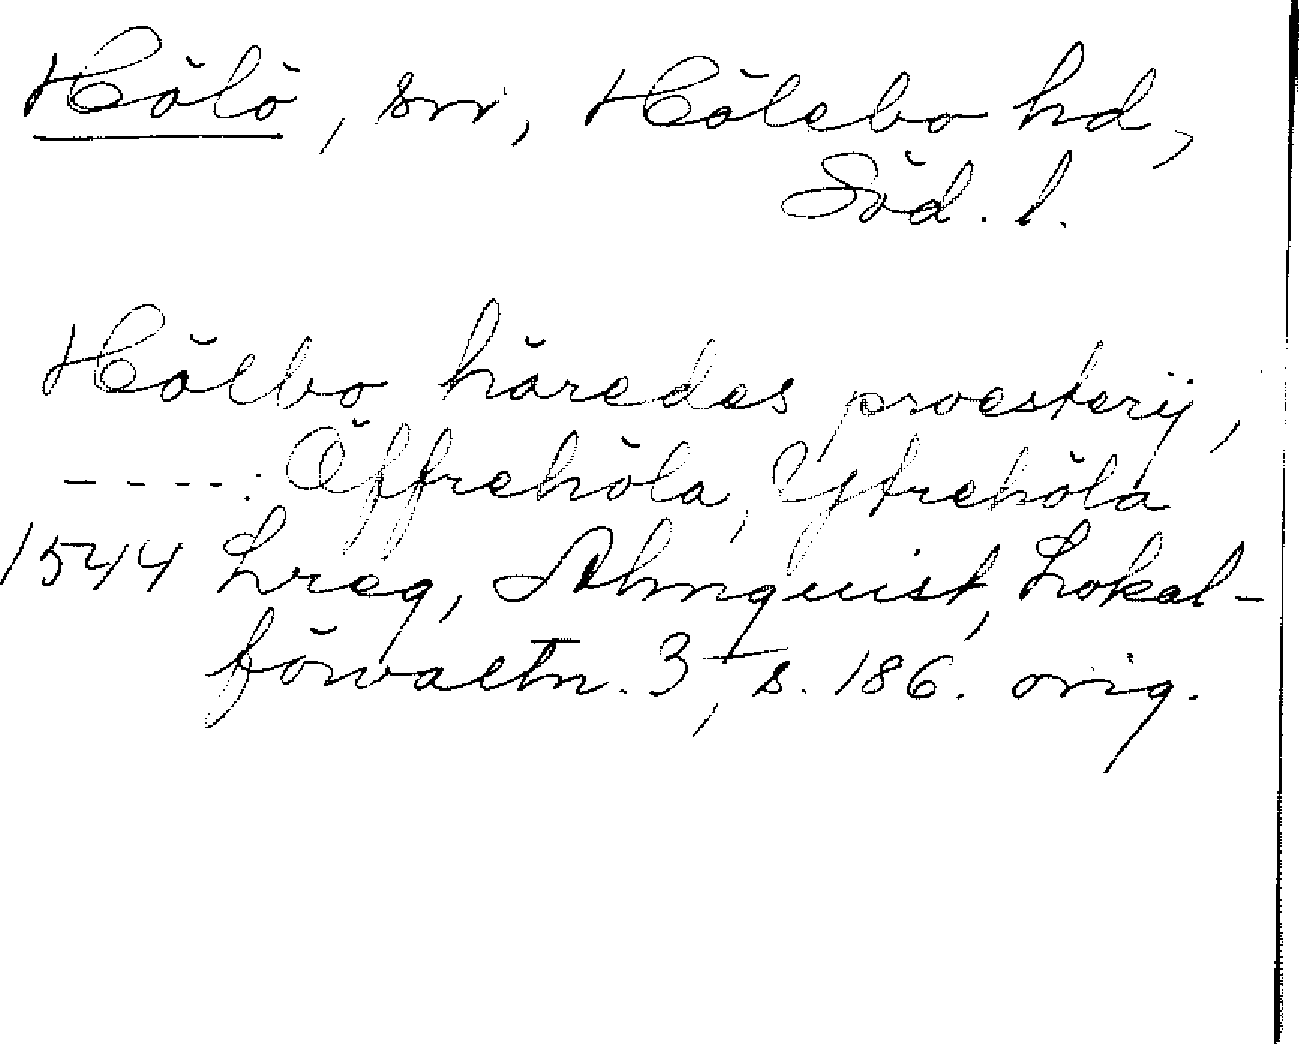 Hölö, sn, Hölebo hd,
Söd. l.
Hölbo häredes proesterij,
----: Öffrehöla, Ytrehöla
1544 Lreg, Almquist, Lokal-
förvaltn. 3, s. 186. orig.